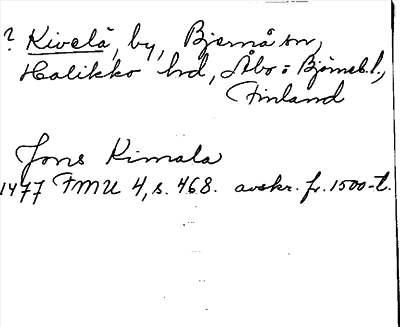 ? Kivelä, by, Bjernå sn,
Halikko hd, Åbo = Björneb. l.,
Finland
Jons Kimala
1477 FMU 4, s. 468. avskr. fr. 1500-t.